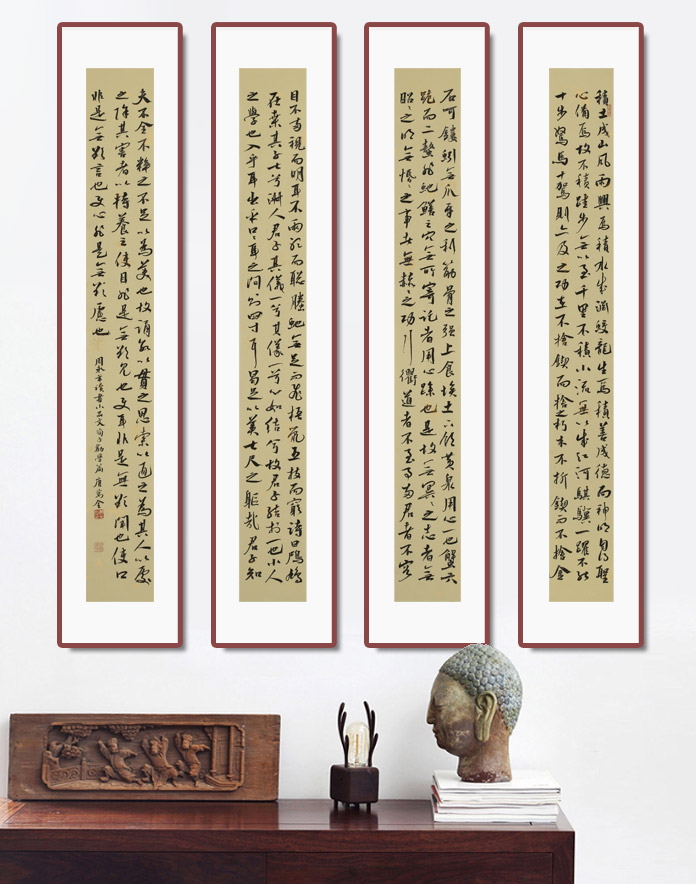 積土成山風雨興焉積水成淵蛟龍生焉積善成德而神明自得聖
心備焉故不積跬步無以至千里不積小流無以成江河騏驥一躍不能
十步駑馬十駕則亦及之功在不捨鍥而捨之朽木不折鍥而不捨金
石可鏤蚓無爪牙之利筋骨之强上食埃土下飲黃泉用心一也蟹六
跪而二螯非蛇鱔之穴無可寄託者用心躁也是故無冥冥之志者無
昭昭之明無惛惛之事者無赫赫之功行衢道者不至事兩君者不容
目不兩視而明耳不兩聽而聰螣蛇無足而飛梧鼠五技而窮詩曰鳲鳩
在桑其子七兮淑人君子其儀一兮其儀一兮心如結兮故君子結於一也小人
之學也入乎耳出乎口口耳之間則四寸耳曷足以美七尺之軀哉君子知
夫不全不粹之不足以為美也故誦數以貫之思索以通之為其人以處
之除其害者以持養之使目非是無欲見也使耳非是無欲聞也使口
非是無欲言也使心非是無欲慮也
書小品文荀子勸學篇